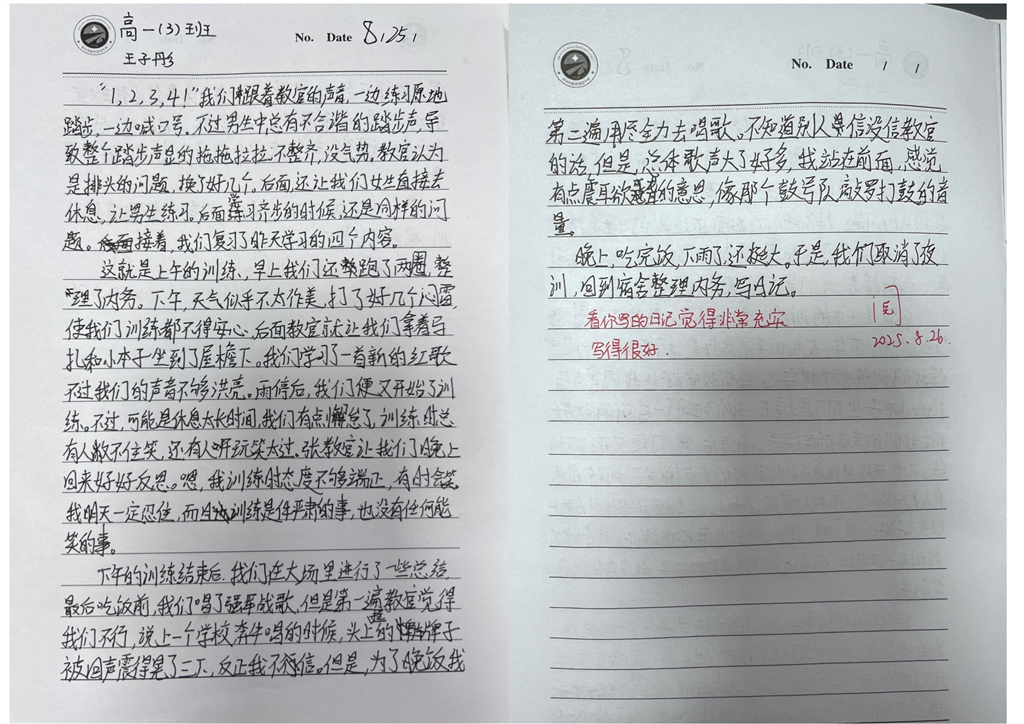 高一(3)班
王子彤
No. Date 8,25,
"1,2,3,4!"我们跟着教官的声音,一边练习原地
踏步,一边喊口号。不过男生中总有不合谐的踏步声,导
致整个踏步声显的拖拖拉拉,不整齐,没气势。教官认为
是排头的问题,换了好几个。后面,还让我们女生直接去
休息,让男生练习。后面练习齐步的时候,还是同样的问
题。接着,我们复习了昨天学习的四个内容。
这就是上午的训练,早上我们还跑了两圈,整
理了内务。下午,天气似乎不太作美,打了好几个闷雷,
使我们训练都不得安心,后面教官就让我们拿着马
扎和小本子坐到了屋檐下。我们学习了一首新的红歌
不过我们的声音不够洪亮。雨停后,我们便又开始了训
练。不过,可能是休息太长时间,我们有点懈怠了,训练时总
有人憋不住笑,还有人开玩笑太过。张教官让我们晚上
回来好好反思。嗯,我训练时态度不够端正,有时会笑。
我明天一定忍住,而且训练是件严肃的事,也没有任何能
笑的事。
下午的训练结束后,我们在大场里进行了一些总结,
最后吃饭前,我们唱了强军战歌,但是第一遍教官觉得
我们不行,说上一个学校奔牛唱的时候,头上的牌子
被回声震得晃了三下,反正我不信。但是,为了晚饭我
No. Date / /
第二遍用尽全力去唱歌。不知道别人是信没信教官
的话,但是,总体歌声大了好多,我站在前面,感觉
有点震耳欲聋的意思,像那个鼓号队敲锣打鼓的音
量。
晚上,吃完饭,下雨了,还挺大。于是,我们取消了夜
训,回到宿舍整理内务,写日记。
看你写的日记觉得非常充实
写得很好.
2025.8.26.